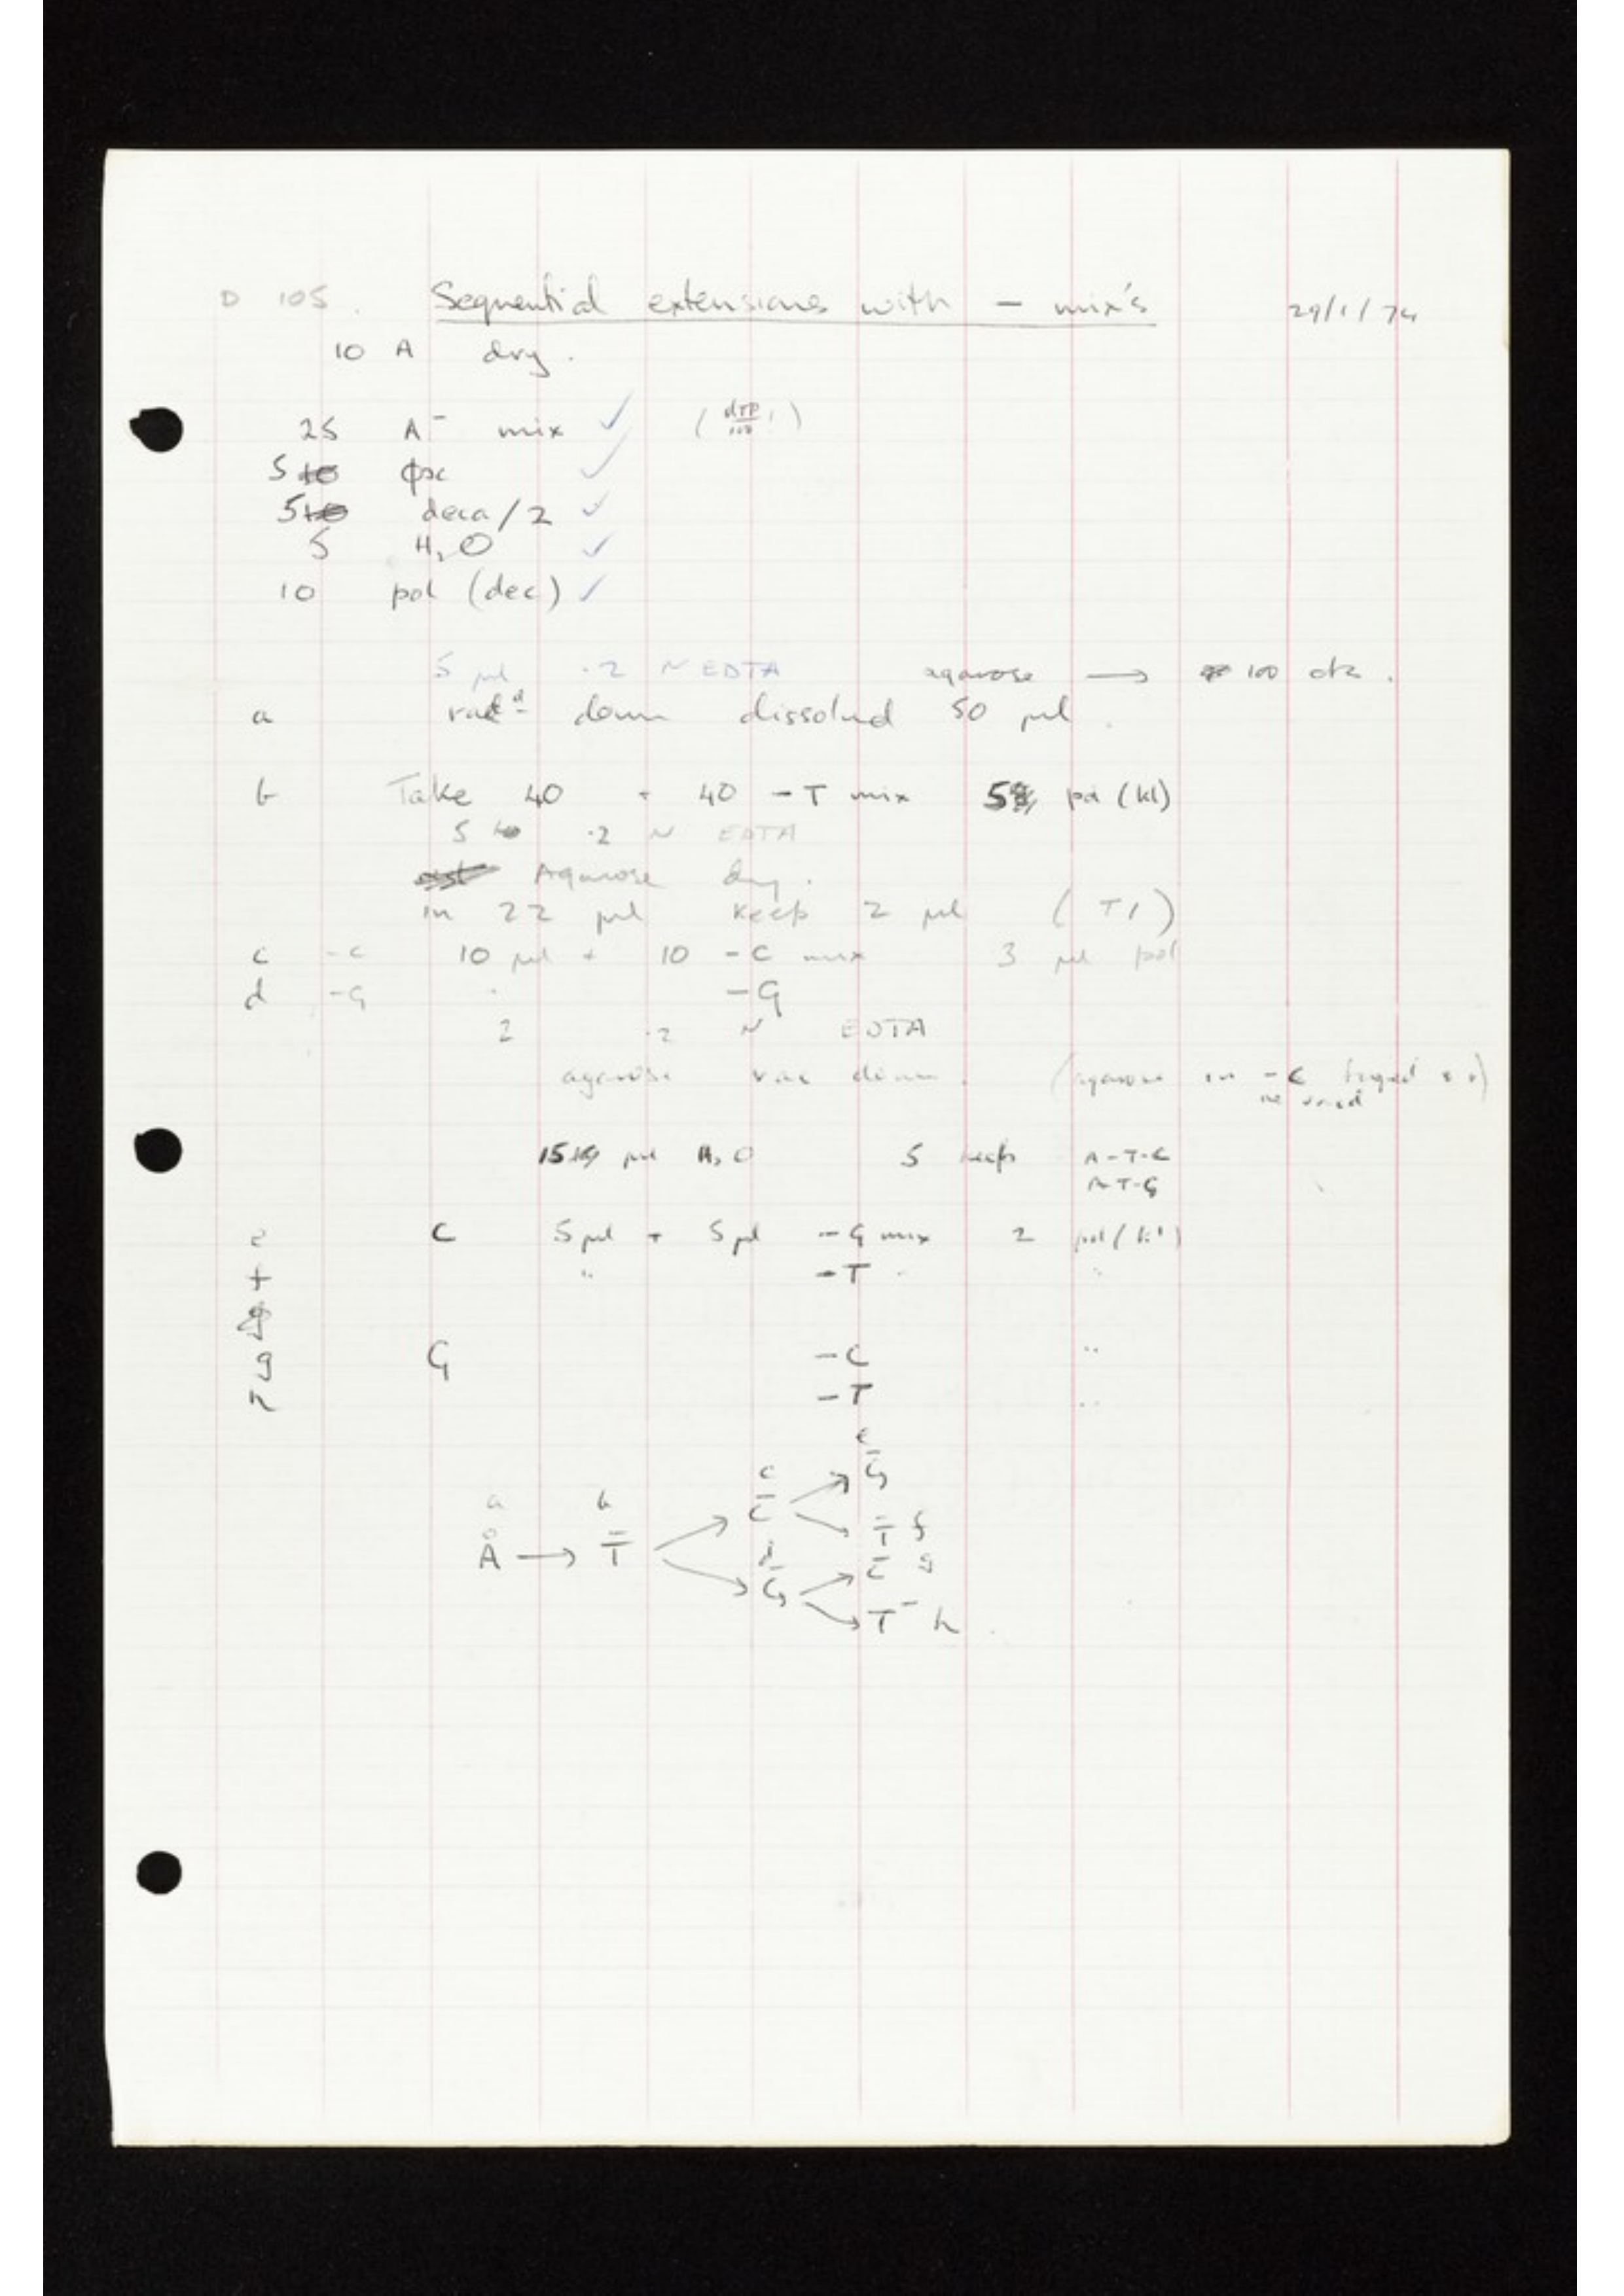 D 105. Sequential extensions with - mix's 29/1/74
10 A dry.
25 A⁻ mix ✓ (dTP/100)
5 φx ✓
5 deca/2 ✓
5 H₂O ✓
10 pol (dec) ✓
5 µl ·2 N EDTA agarose → 100
a down dissolved 50 µl.
b Take 40 + 40 -T mix 5 pol (kl)
5 ·2 N EDTA
Agarose dry.
in 22 µl keep 2 µl (T1)
c -C 10 µl + 10 -C mix 3 µl pol
d -G -G
2 ·2 N EDTA
agarose vac down. (agarose in -C
15 µl H₂O 5 keep A-T-C
A-T-G
e C 5 µl + 5 µl -G mix 2 pol (kl)
f " -T "
g G -C "
h -T "
e
c G⁻
a b C⁻ T⁻ f
A → T⁻ d C⁻ g
G⁻ T⁻ h